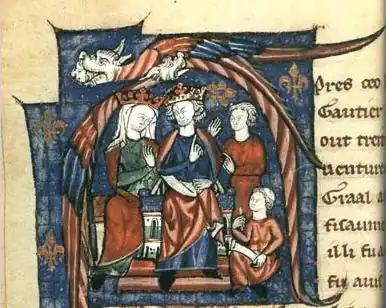 pres ceo
Gautier
out tret
uenture
Graal a
fisaume
illi fu a
fu aui